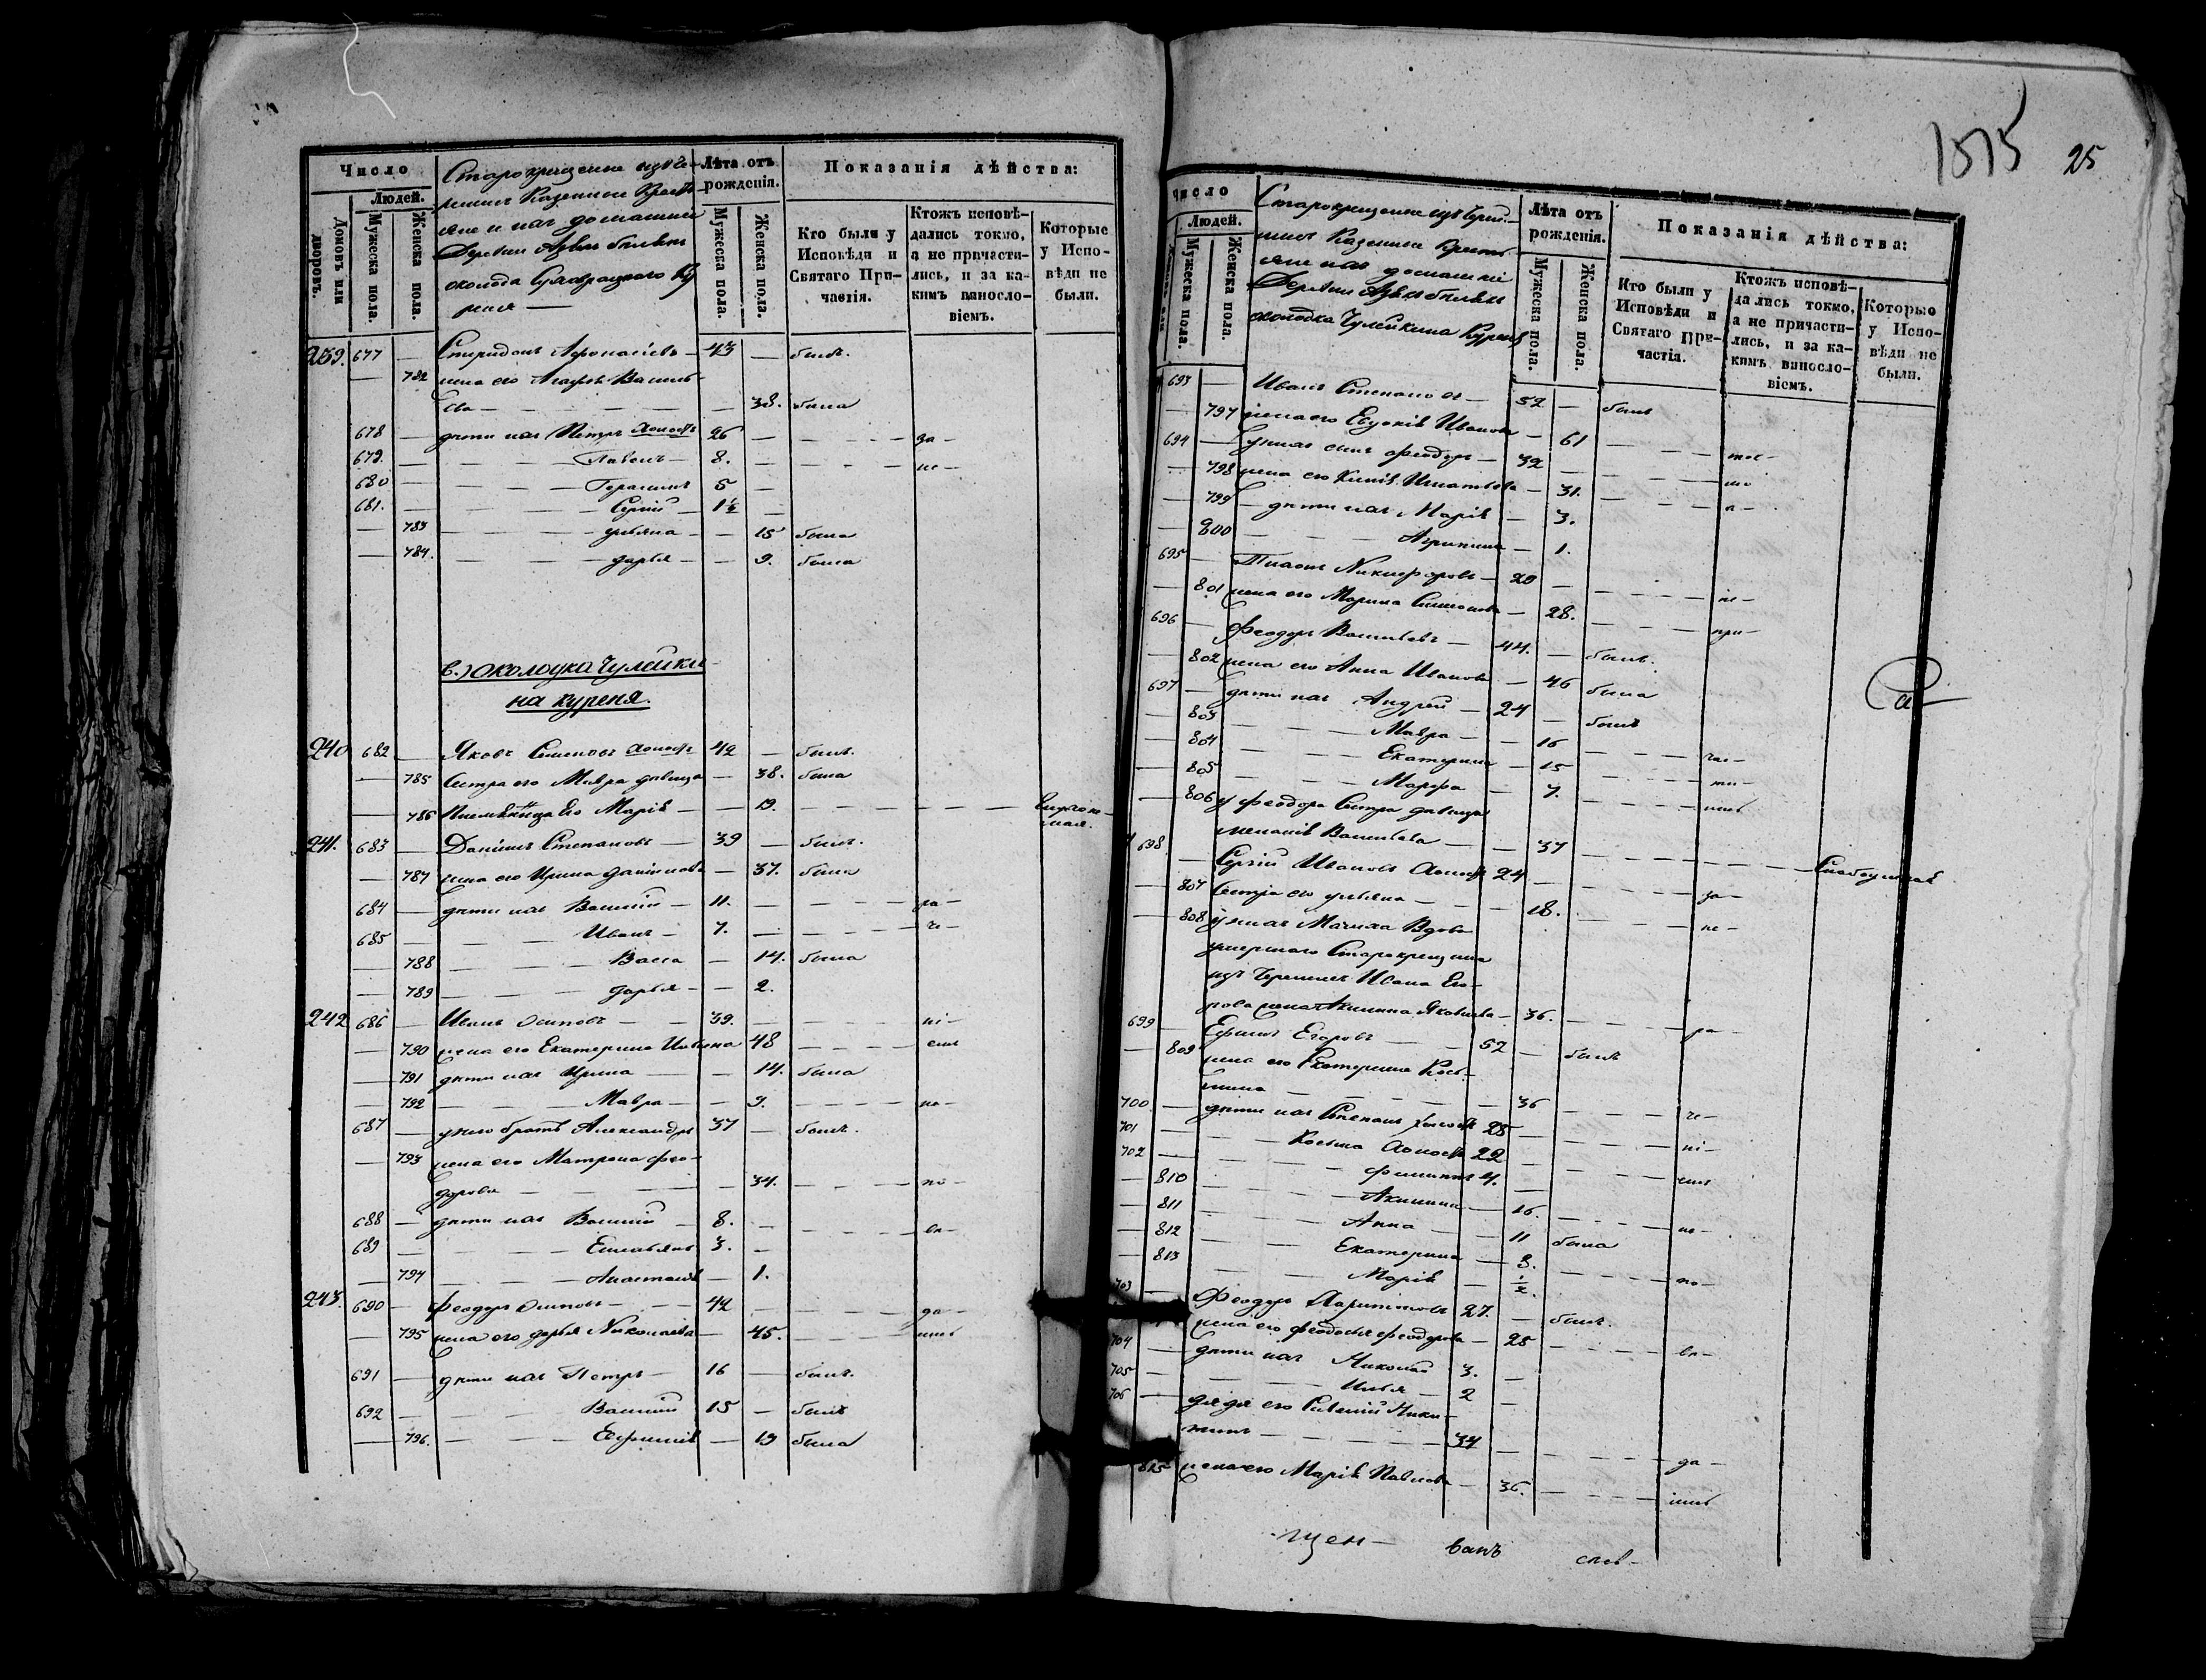 1515 25
Число
Людей.
Домовъ или дворовъ.
Мужеска пола.
Женска пола.
Старокрещенные изъ Че-
мисъ Казенные Кресть-
яне и ихъ домашніе
Деревни
околодка
реня —
Лѣта отъ рожденія.
Мужеска пола.
Женска пола.
Показанія дѣйства:
Кто были у Исповѣди и Святаго Причастія.
Ктожъ исповѣдались токмо, а не причастились, и за какимъ винословіемъ.
Которые у Исповѣди не были.
239. 677 — Спиридонъ Афонасіевъ — 43 — былъ.
— 782 жена его Агафья Василь-
ева — — — 38. была
678 — дѣти ихъ Петръ холостъ 26 — за —
679. — Павелъ — 8. — не —
680 — Герасимъ 5 —
681. — Сергій — 1½ —
— 783 — ульяна — — 15 была
— 784. — дарья — — 9. была
в.) околодка Чулейки-
на куреня.
240 682 — Яковъ Семеновъ холостъ 42 — былъ.
— 785 Сестра его Мавра дѣвица — 38. была
— 786 Племянница Его Марія — — 19. —
241. 683 — Даніилъ Степановъ — 39 — былъ.
— 787 жена его Ирина данилова — 37. была
684 — дѣти ихъ Василій — 11. — ра —
685 — Иванъ — 7. — че —
— 788 — Васса — 14. была
— 789 — дарья — — 2.
242 686 — Иванъ Осиповъ — — 39. — ні —
— 790 жена его Екатерина 48 — емъ
— 791 дѣти ихъ Ирина — — 14. была
— 792 — Мавра — — 9. — по —
687 — у него братъ Александръ 37 — былъ.
— 793 жена его Матрона Фео-
дорова — — — 34. — по —
688 — дѣти ихъ Василій — 8. — вѣ —
689 — Емельянъ 3. —
— 794 — Анастасія — 1.
243. 690 — Феодоръ Осиповъ — 42 — да —
— 795 жена его дарья Николаева — 45. —
691 — дѣти ихъ Петръ — 16 — былъ.
692 — Василій 15 — былъ
— 796. — Евфимія — 19 была
Число
Людей.
Мужеска пола.
Женска пола.
Старокрещенные изъ Чере-
мисъ Казенные Кресть-
яне ихъ домашніе
Деревни
околодка Чулейкина Куреня
Лѣта отъ рожденія.
Мужеска пола.
Женска пола.
Показанія дѣйства:
Кто были у Исповѣди и Святаго Причастія.
Ктожъ исповѣдались токмо, а не причастились, и за какимъ винословіемъ.
Которые у Исповѣди не были.
693 — Иванъ Степановъ — 52 — былъ
— 797 жена его Евдокія Иванова — 61 —
694 — у нихъ сынъ Феодоръ — 32 —
— 798 жена его Ксенія Игнатьева — 31. —
— 799 — дѣти ихъ Марія — 3.
— 800 — Агрипина — 1.
695 — Никифоровъ — 20 — не —
— 801 жена его Марина Симеонова — 28. — при —
696 — Феодоръ Васильевъ — 44. — былъ.
— 802 жена его Анна Иванова — 46 была
697 — дѣти ихъ Андрей — 24 — былъ
— 803 — Мавра — — 16 — час —
— 804 — Екатерина — 15 — ти —
— 805 — Марфа — 7. —
— 806 у Феодора Сестра дѣвица
Васильева — — 37 —
698. — Сергій Ивановъ холостъ 24 — за —
— 807 Сестра его ульяна — — 18. — не —
— 808 у нихъ Мачиха Вдова
умершаго Старокрещена
изъ Черемисъ Ивана Его-
рова жена Акилина Яковлева — 36. — ра —
699 — Ефимъ Егоровъ — — 52 — былъ
— 809 жена его Екатерина Козь-
мина — — 36 — че —
700. — дѣти ихъ Степанъ холостъ 25 — ні —
701 — Косьма холостъ 22 — емъ
702 — Филиппъ 4. —
— 810 — Акилина — 16. — не —
— 811 — Анна — 11 была
— 812 — Екатерина — 8. — по —
— 813 — Марія — ½.
703 — Феодоръ 27. — былъ.
жена его Феодосья Феодорова — 25 — вѣ —
704 — дѣти ихъ Николай 3. —
705 — Илья — 2 —
706 — дядя его Ники-
тинъ — — 34 — да —
815 жена его Марія Павлова — 36. —
щен — ванъ